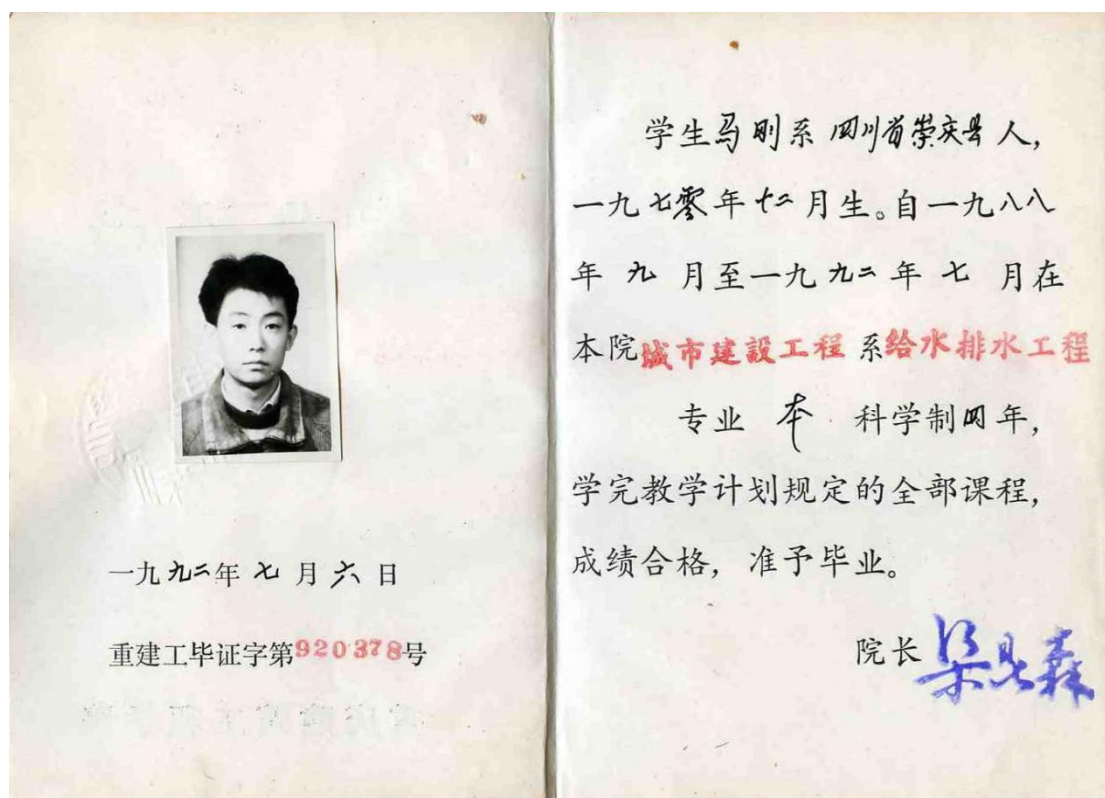 一九九二年七月六日
重建工毕证字第920378号
学生马刚系四川省崇庆县人，
一九七零年十二月生。自一九八八
年九月至一九九二年七月在
本院城市建設工程系给水排水工程
专业本科学制四年，
学完教学计划规定的全部课程，
成绩合格，准予毕业。
院长